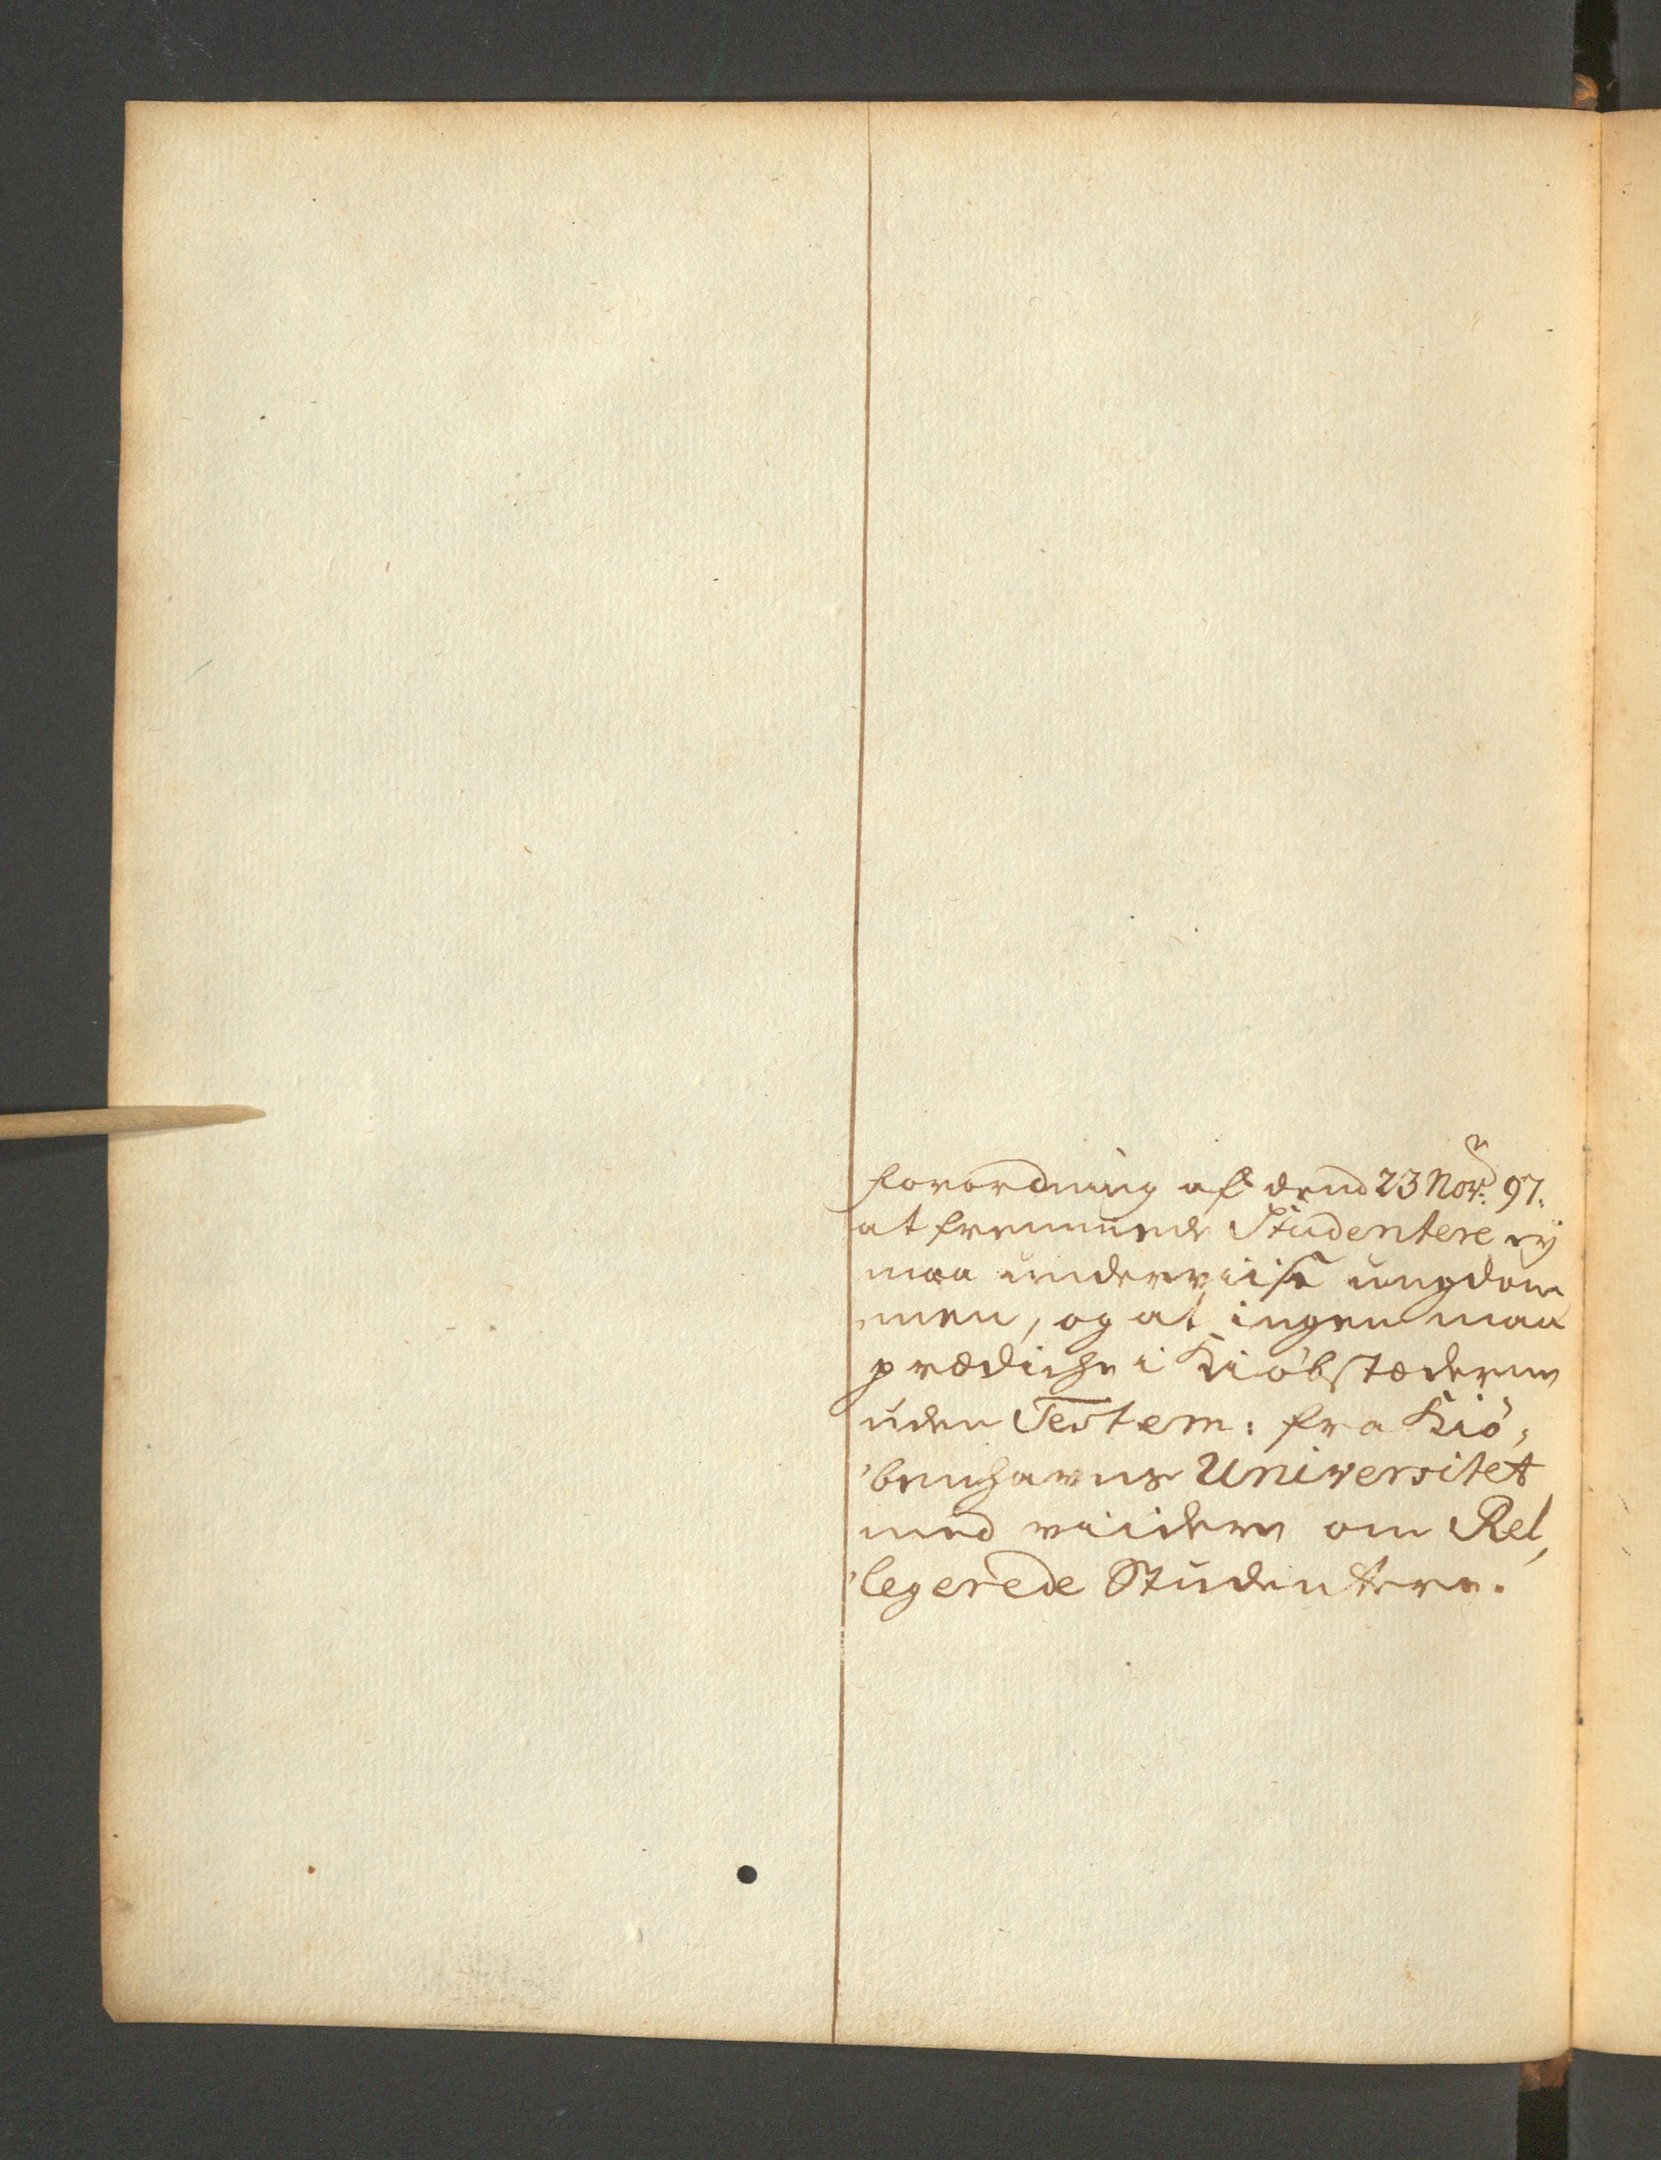 forordning af dend 23 Nov: 97.
at fremmede Studentere ey
maa underviise ungdom
men, og at ingen maa
prædiche i Kiøbstæderne
uden Testem: fra Kiø,
benhavns Universitet
med viidere om Rel,
legerede Studentere.